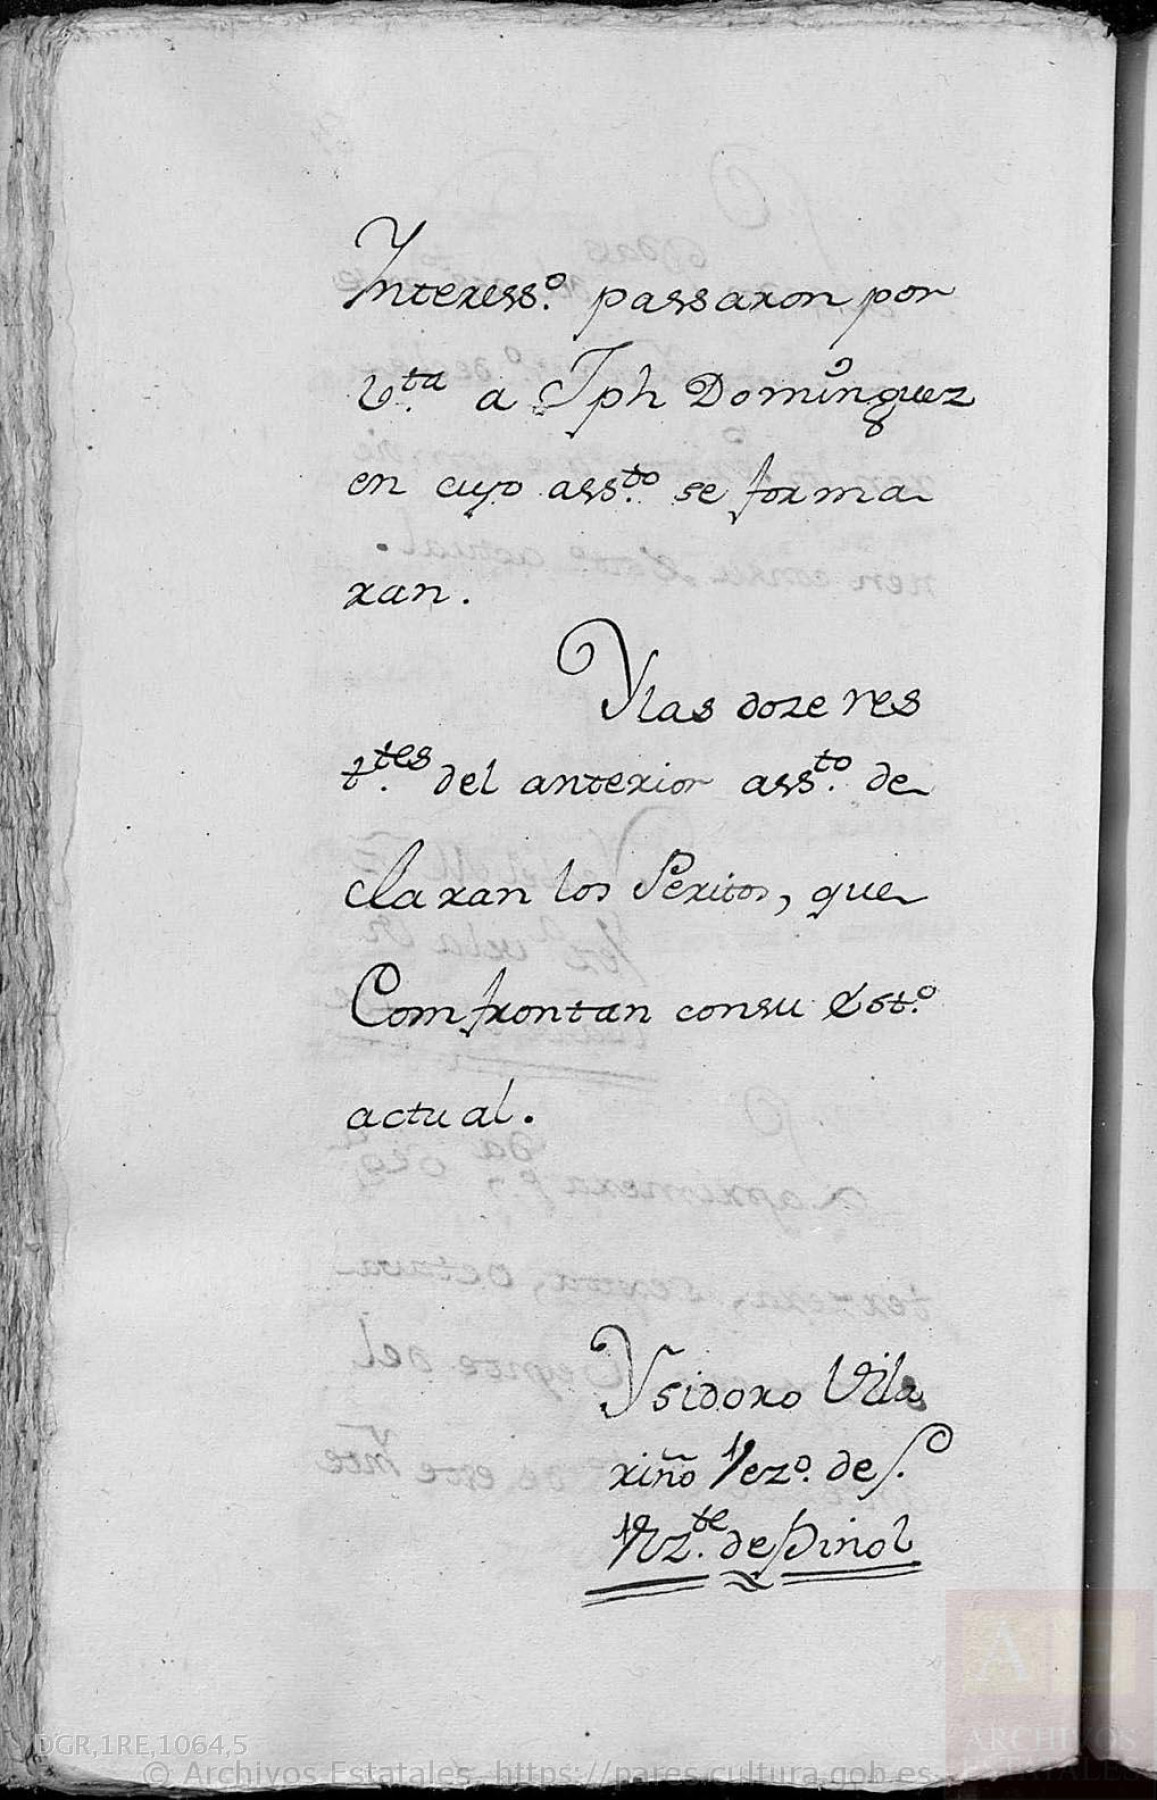 Interess.º passaron por
V.ta a Jph Dominguez
en cuyo ass.to se forma
ran.
Y las doze res
t.tes del anterior ass.to de
claran los Peritos, que
Comfrontan con su Est.º
actual.
Ysidoro Vila
riño Vez.º de S.
Vz.te de Pinol
DGR,1RE,1064,5
© Archivos Estatales, https://pares.cultura.gob.es
AE
ARCHIVOS
ESTATALES